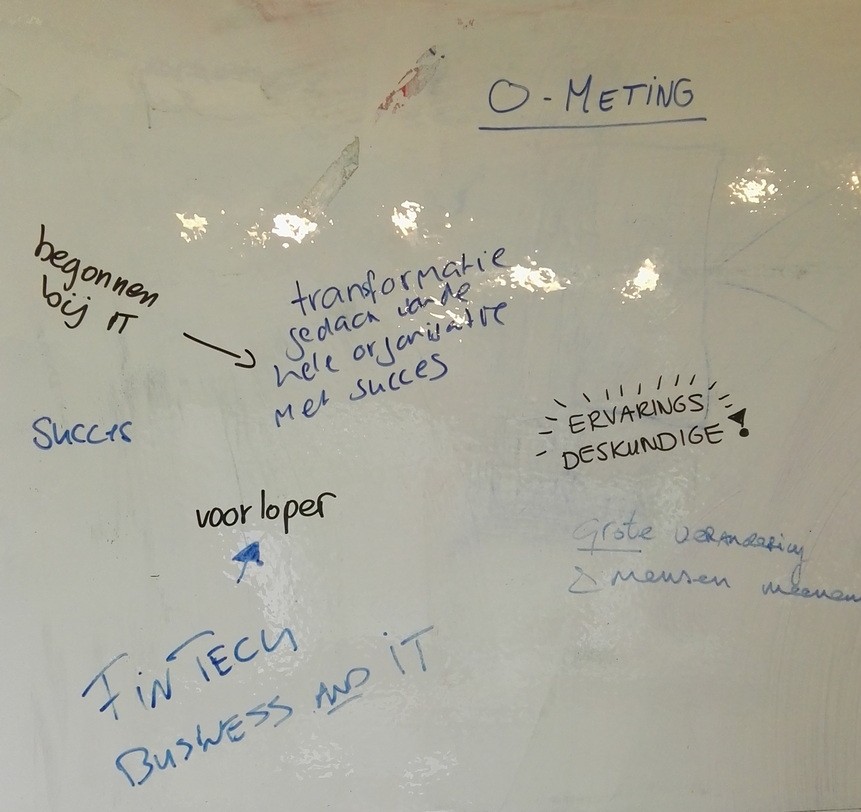 O-METING
begonnen
bij IT
transformatie
gedach van de
hele organisatie
met succes
Succes
ERVARINGS
DESKUNDIGE!
voorloper
Grote VERANDERING
mensen meenem
FINTECH
BUSINESS AND IT